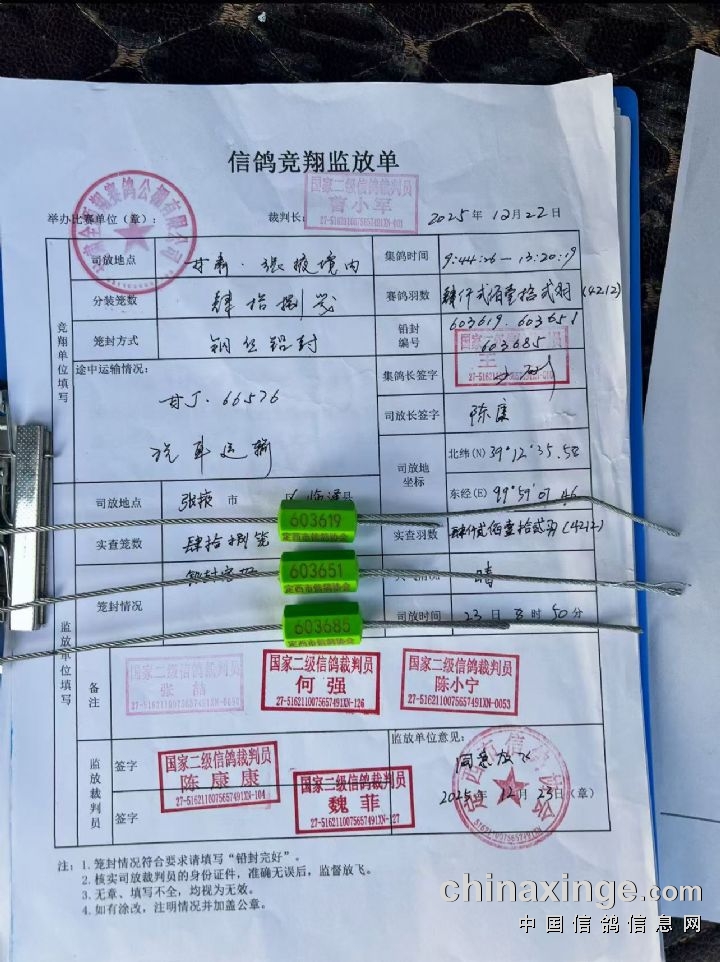 信鸽竞翔监放单
国家二级信鸽裁判员
曹小军
举办比赛单位（章）：
裁判长：
2025年12月22日
竞翔单位填写
司放地点
甘肃·张掖境内
集鸽时间
9:44:26—13:20:19
分装笼数
肆拾捌笼
赛鸽羽数
肆仟贰佰壹拾贰羽(4212)
笼封方式
钢丝铅封
铅封编号
603619. 603651
603685
途中运输情况：
甘J·66576
汽车运输
集鸽长签字
司放长签字
陈康
司放地坐标
北纬(N) 39°12'35.58
东经(E) 99°59'07.46
监放单位填写
司放地点
张掖市
区临泽县
实查笼数
肆拾捌笼
实查羽数
肆仟贰佰壹拾贰羽(4212)
笼封情况
晴
司放时间
23日8时50分
603619
定西市信鸽协会
603651
定西市信鸽协会
603685
定西市信鸽协会
备注
国家二级信鸽裁判员
国家二级信鸽裁判员
何强
27-5162110075657491XN-126
国家二级信鸽裁判员
陈小宁
27-5162110075657491XN-0053
监放裁判员
签字
国家二级信鸽裁判员
陈康康
27-5162110075657491XN-104
签字
国家二级信鸽裁判员
魏菲
监放单位意见：
同意放飞
2025年12月23日（章）
注：1.笼封情况符合要求请填写“铅封完好”。
2.核实司放裁判员的身份证件，准确无误后，监督放飞。
3.无章、填写不全，均视为无效。
4.如有涂改，注明情况并加盖公章。
chinaxinge.com
中国信鸽信息网